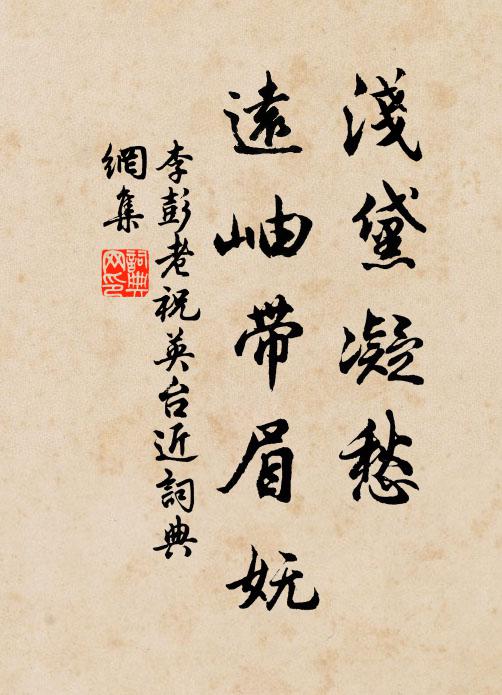 淺黛凝愁
遠岫帶眉嫵
李彭老祝英台近詞典
網集
詞典
网印